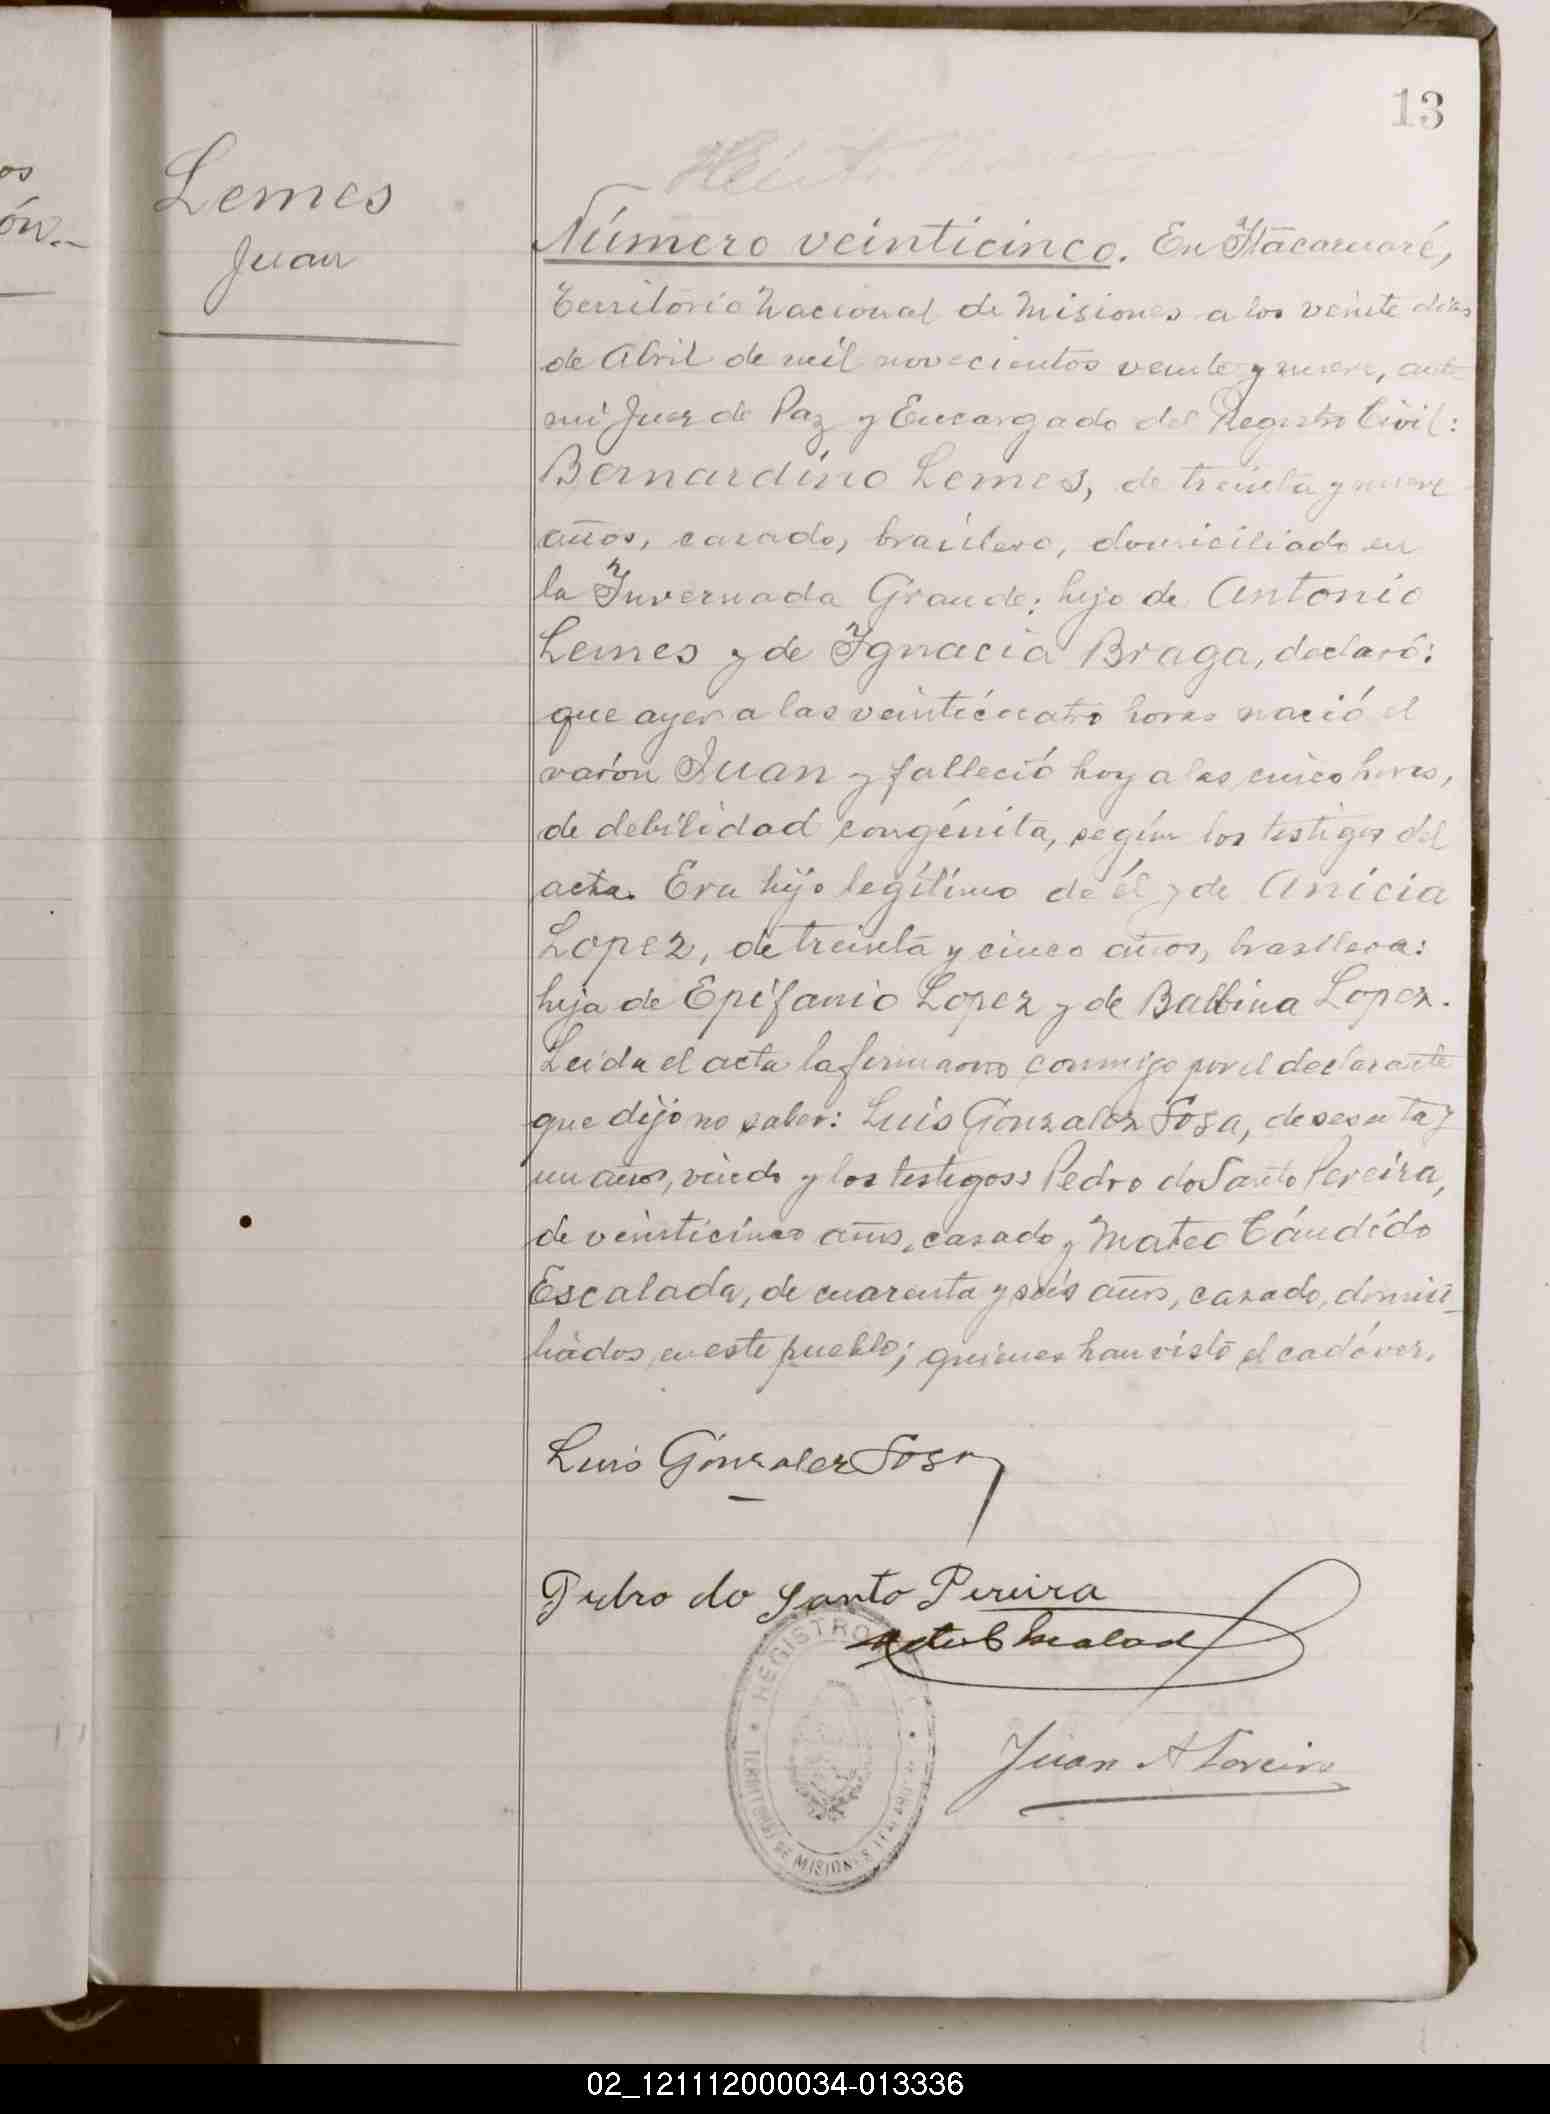 13
os
ón.-
Lemes
Juan
Número veinticinco. En Itacaruaré,
Territorio Nacional de Misiones a los veinte dias
de Abril de mil novecientos veinte y nueve, ante
mi Juez de Paz y Encargado del Registro Civil:
Bernardino Lemes, de treinta y nueve
años, casado, brasilero, domiciliado en
la Invernada Grande; hijo de Antonio
Lemes y de Ignacia Braga, declaró:
que ayer a las veinticuatro horas nació el
varón Juan y falleció hoy a las cinco horas,
de debilidad congénita, según los testigos del
acta. Era hijo legítimo de él y de Anicia
Lopez, de treinta y cinco años, brasilera:
hija de Epifanio Lopez y de Balbina Lopez.
Leida el acta la firmaron conmigo por el declarante
que dijo no saber: Luis Gonzalez Sosa, de sesenta y
un años, viudo y los testigos: Pedro do Santo Pereira,
de veinticinco años, casado y Mateo Cándido
Escalada, de cuarenta y seis años, casado, domici-
liados en este pueblo; quienes han visto el cadáver.
Luis Gonzalez Sosa
Pedro do Santo Pereira
Juan A
REGISTRO
TERRITORIO DE MISIONES
02_121112000034-013336